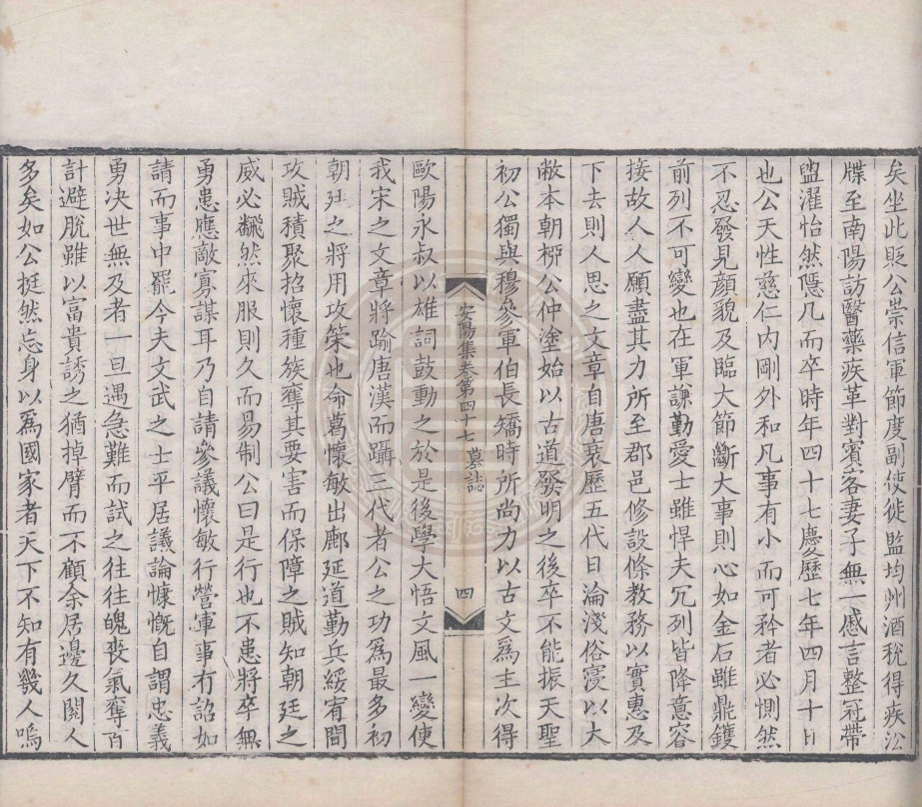 矣坐此貶公崇信軍節度副使徙監均州酒稅得疾沿
牒至南陽訪醫藥疾革對賓客妻子無一慼言整冠帶
盥濯怡然隱几而卒時年四十七慶歷七年四月十日
也公天性慈仁内剛外和凡事有小而可矜者必惻然
不忍發見顏貌及臨大節斷大事則心如金石雖鼎鑊
前列不可變也在軍謙勤愛士雖悍夫冗列皆降意容
接故人人願盡其力所至郡邑修設條教務以實惠及
下去則人思之文章自唐衰歷五代日淪淺俗寖以大
敝本朝栁公仲塗始以古道發明之後卒不能振天聖
初公獨與穆參軍伯長矯時所尚力以古文爲主次得
安陽集卷第四十七 墓誌 四
歐陽永叔以雄詞鼓動之於是後學大悟文風一變使
我宋之文章將踰唐漢而躡三代者公之功爲最多初
朝廷之將用攻策也命葛懷敏出鄜延道勤兵綏宥間
攻賊積聚招懷種族奪其要害而保障之賊知朝廷之
威必飜然來服則久而易制公曰是行也不患將卒無
勇患應敵寡謀耳乃自請參議懷敏行營軍事有詔如
請而事中罷今夫文武之士平居議論慷慨自謂忠義
勇决世無及者一旦遇急難而試之往往魄喪氣奪百
計避脫雖以富貴誘之猶掉臂而不顧余居邊久閱人
多矣如公挺然忘身以爲國家者天下不知有幾人嗚